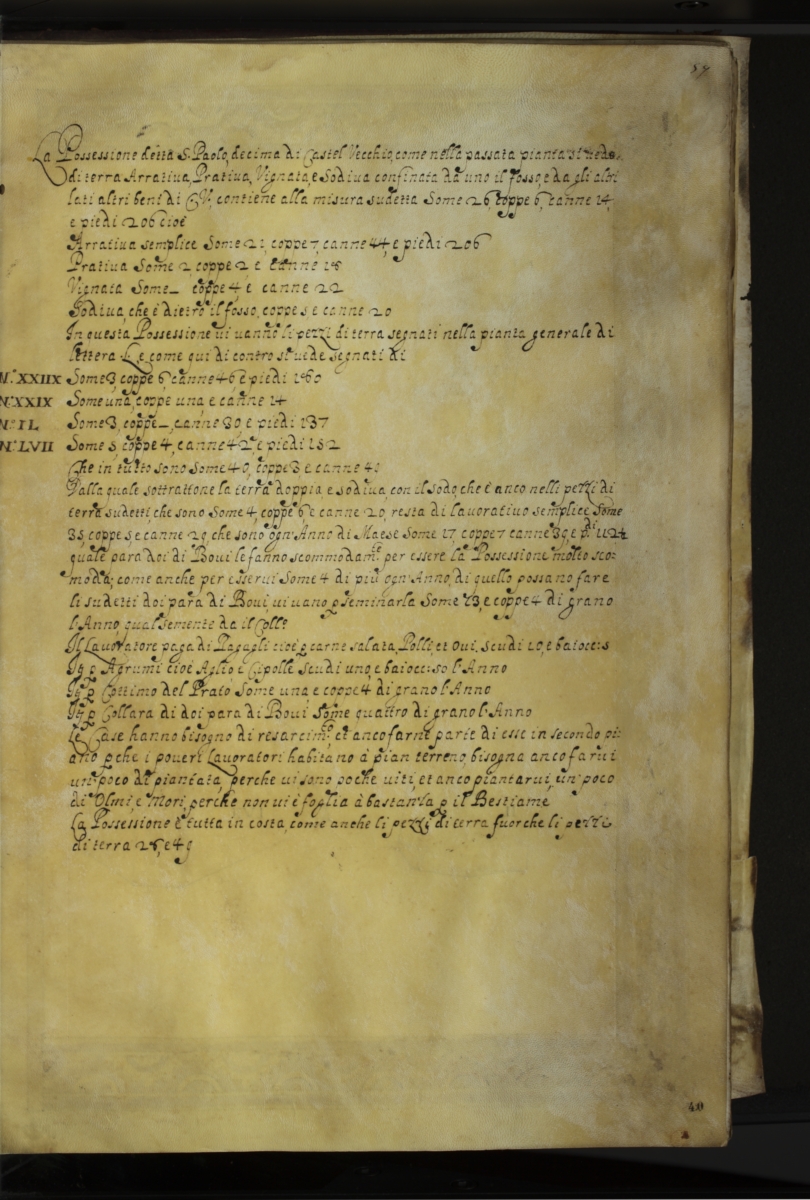 59
La Possessione detta S. Paolo, decima di Castel Vecchio, come nella passata pianta si vede,
di terra Arrativa, Prativa, Vignata, e Sodiva confinata da uno il fosso, e da gli altri
lati altri beni di CV, contiene alla misura sudetta Some 26 coppe 6, canne 14,
e piedi 206 cioè
Arrativa semplice Some 21 coppe 7 canne 44, e piedi 206
Prativa Some 2 coppe 2 e canne 18
Vignata Some _ coppe 4 e canne 22
Sodiva, che è dietro il fosso, coppe 5 e canne 20
In questa Possessione vi vanno li pezzi di terra segnati nella pianta generale di
lettera L e come qui di contro si vede segnati di
N.º XXIIX Some 3 coppe 6 canne 46 e piedi 160
N. XXIX Some una, coppe una, e canne 14
N.º IL Some 3, coppe _, canne 30, e piedi 137
N.º LVII Some 5 coppe 4, canne 42 e piedi 152
Che in tutto sono Some 40, coppe 3 e canne 40
Dalla quale sottrattone la terra doppia e sodiva, con il sodo, che è anco nelli pezzi di
terra sudetti che sono Some 4 coppe 6 e canne 20, resta di lavorativo semplice Some
35 coppe 5 e canne 29 che sono ogn'Anno di Maese Some 17 coppe 7 canne 39 e pdi 112½
quale para doi di Bovi le fanno scommodamte per essere la Possessione molto sco:
moda; come anche per esservi Some 4 di più ogn'Anno, di quello possano fare
li sudetti doi para di Bovi, vi vano p seminarla Some 13, e coppe 4 di grano
l'Anno, qual semente da il Collº
Il Lavoratore paga di Pagugli cioè p carne salata, Polli, et Ovi. scudi 10, e baiocc: 5
It p Agrumi cioè Aglio e Cipolle scudi uno, e baiocc: 50 l'Anno
It p Cottimo del Prato Some una e coppe 4 di grano l'Anno
It p Collara di doi para di Bovi Some quattro di grano l'Anno
Le Case hanno bisogno di resarcimto et anco farne parte di esse in secondo pi:
ano p che i poveri Lavoratori habitano à pian terreno, bisogna anco farvi
un poco di piantata, perche vi sono poche viti, et anco piantarvi, un poco
di Olmi, e Mori, perche non vi è foglia à bastanza p il Bestiame
La Possessione è tutta in costa, come anche li pezzi di terra fuorche li pezzi
di terra 28, e 49
40